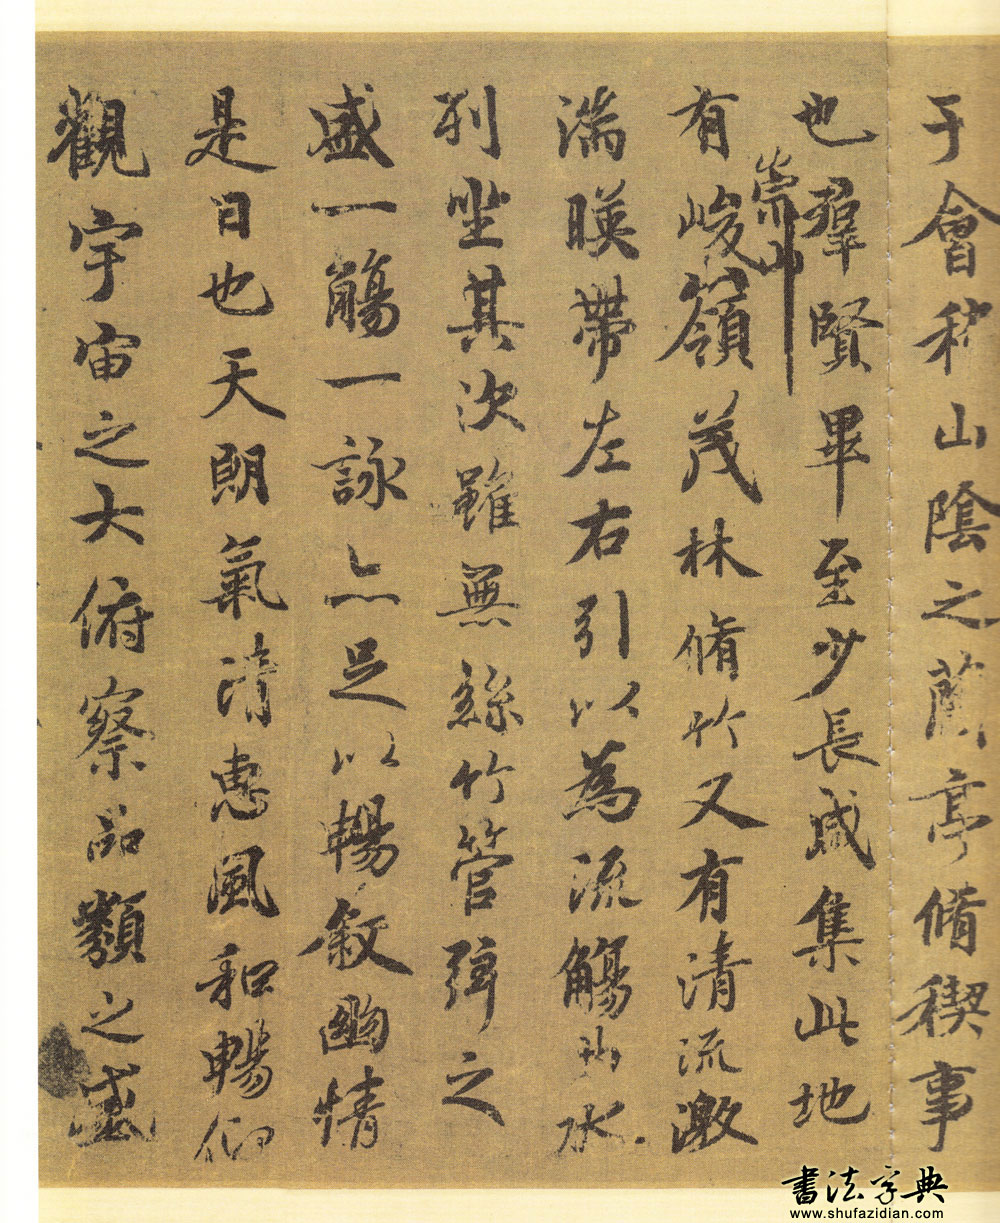 于會稽山陰之蘭亭脩稧事
也羣賢畢至少長咸集此地
有崇山峻嶺茂林脩竹又有清流激
湍暎帶左右引以為流觴曲水
列坐其次雖無絲竹管弦之
盛一觴一詠亦足以暢敘幽情
是日也天朗氣清惠風和暢仰
觀宇宙之大俯察品類之盛
書法字典
www.shufazidian.com